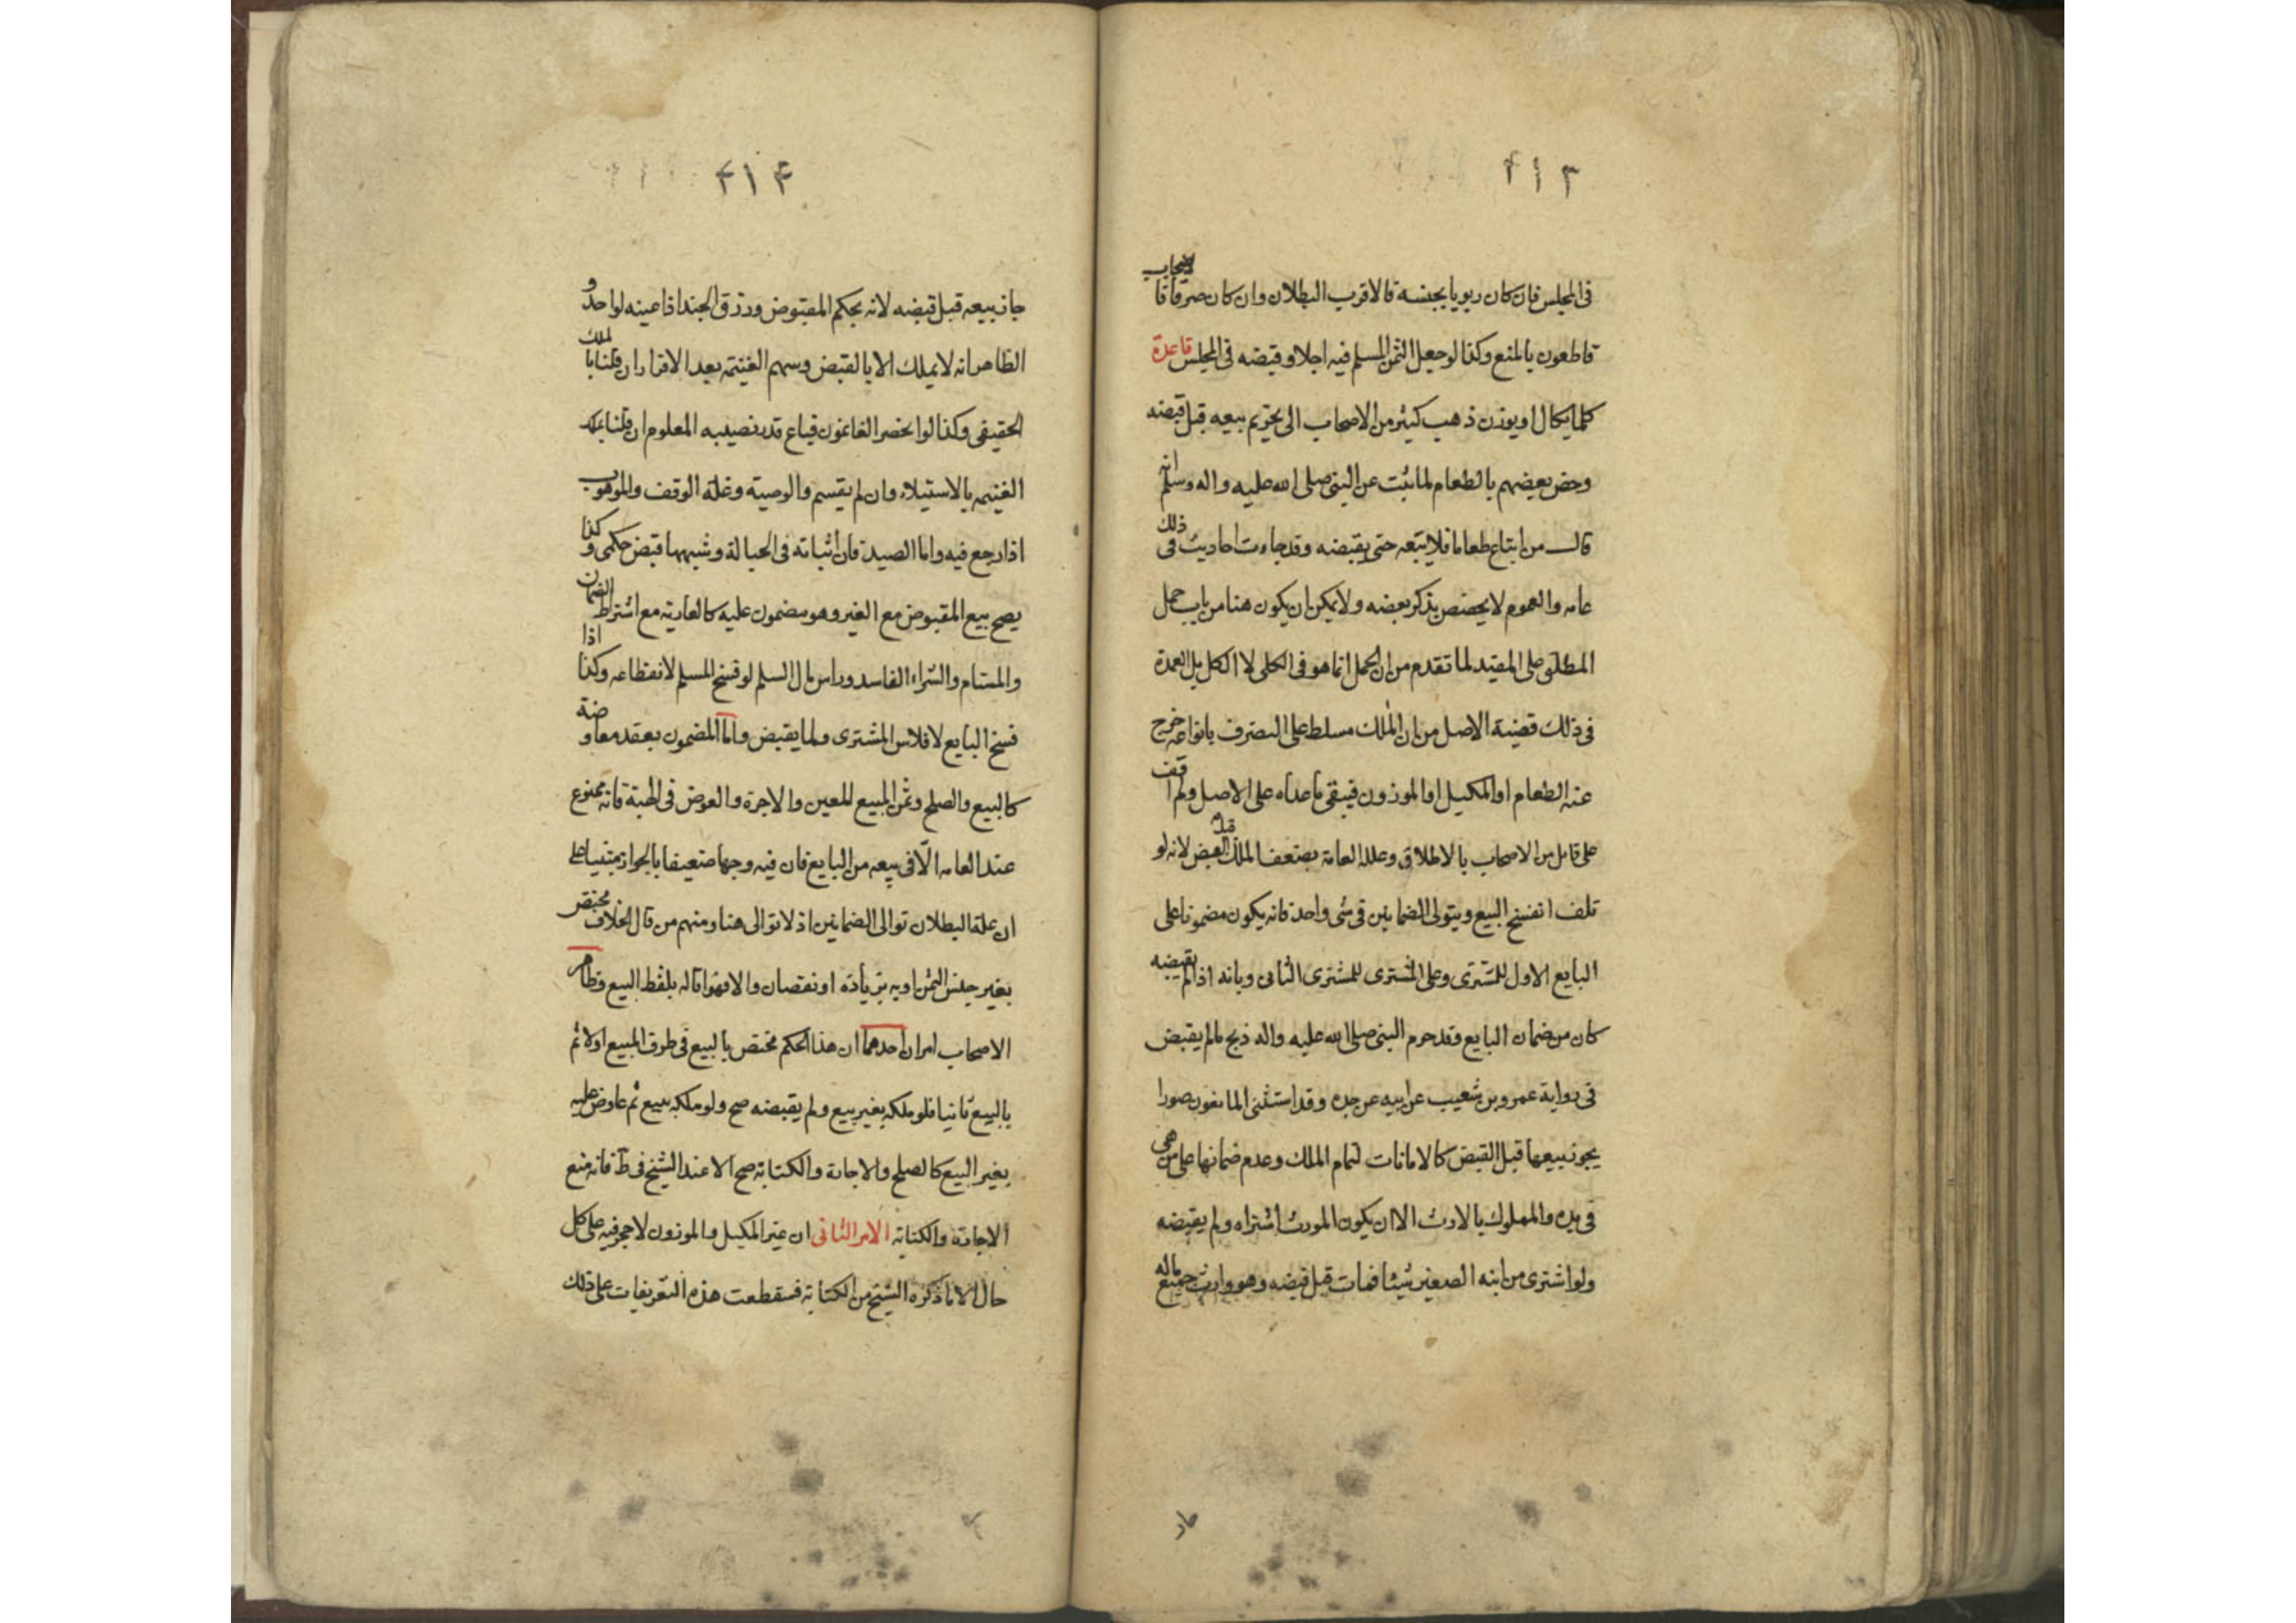 ٤١٣
فى المجلس فان كان ربويا بجنسه فالاقرب البطلان وان كان صرفا فالاصحاب
قاطعون بالمنع وكذا لو جعل الثمن المسلم فيه اجلا و قبضه فى المجلس قاعدة
كلما يكال او يوزن ذهب كثير من الاصحاب الى تحريم بيعه قبل قبضه
وخص بعضهم بالطعام لما ثبت عن النبى صلى الله عليه واله وسلم انه
قال من ابتاع طعاما فلا يبعه حتى يقبضه وقد جاءت احاديث فى ذلك
عامه والعموم لا يخصص بذكر بعضه ولا يمكن ان يكون هنا من باب حمل
المطلق على المقيد لما تقدم من ان الحمل انما هو فى الكلى لا الكل بل العمدة
فى ذلك قضية الاصل من ان الملك مسلط على التصرف بانواعه خرج
عنه الطعام او المكيل او الموزون فيبقى ما عداه على الاصل ولم اقف
على قائل من الاصحاب بالاطلاق وعلله العامة بضعف الملك قبل القبض لانه لو
تلف انفسخ البيع ويتولى الضمانين فى شى واحد فانه يكون مضمونا على
البايع الاول للمشترى وعلى المشترى للمشترى الثانى وبانه اذا لم يقبضه
كان من ضمان البايع وقد حرم النبى صلى الله عليه واله ذبح مالم يقبض
فى رواية عمرو بن شعيب عن ابيه عن جده وقد استثنى المانعون صورا
يجوز بيعها قبل القبض كالامانات لتمام الملك وعدم ضمانها على من هى
فى يده والمملوك بالارث الا ان يكون المورث اشتراه ولم يقبضه
ولو اشترى من ابنه الصغير شيئا فمات قبل قبضه وهو وارث جميع ماله
٤١٤
جاز بيعه قبل قبضه لانه بحكم المقبوض ورزق الجند اذا عينه لواحد و
الظاهر انه لا يملك الا بالقبض وسهم الغنيمه بعد الافراز ان قلنا بالملك
الحقيقى وكذا لو احضر الغانمون فباع قدر نصيبه المعلوم ان قلنا بملك
الغنيمه بالاستيلاء وان لم يقسم والوصية وغلة الوقف والموهوب
اذا رجع فيه واما الصيد فان اثباته فى الحبالة وشبهها قبض حكمى وكذا
يصح بيع المقبوض مع الغير وهو مضمون عليه كالعارية مع اشتراط الضمان
والمستام والشراء الفاسد وراس مال السلم لو فسخ المسلم لانقطاعه وكذا اذا
فسخ البايع لافلاس المشترى ولما يقبض واما المضمون بعقد معاوضة
كالبيع والصلح وثمن المبيع المعين والاجرة والعوض فى الهبة فانه ممنوع
عند العامه الا فى بيعه من البايع فان فيه وجها ضعيفا بالجواز مبنيا على
ان علة البطلان توالى الضمانين اذ لا توالى هنا ومنهم من قال الخلاف مختص
بغير جنس الثمن او به بزيادة او نقصان والا فهو اقاله بلفظ البيع وظاهر
الاصحاب امران احدهما ان هذا الحكم مختص بالبيع فى طرف المبيع اولا ثم
بالبيع ثانيا فلو ملكه بغير بيع ولم يقبضه صح ولو ملكه ببيع ثم عاوض عليه
بغير البيع كالصلح والاجارة والكتابة صح الا عند الشيخ فى ط فانه منع
الاجارة والكتابة الامر الثانى ان غير المكيل والموزون لا حجر فيه على كل
حال الا ما ذكره الشيخ من الكتابة فسقطعت هذه التعريفات على ذلك